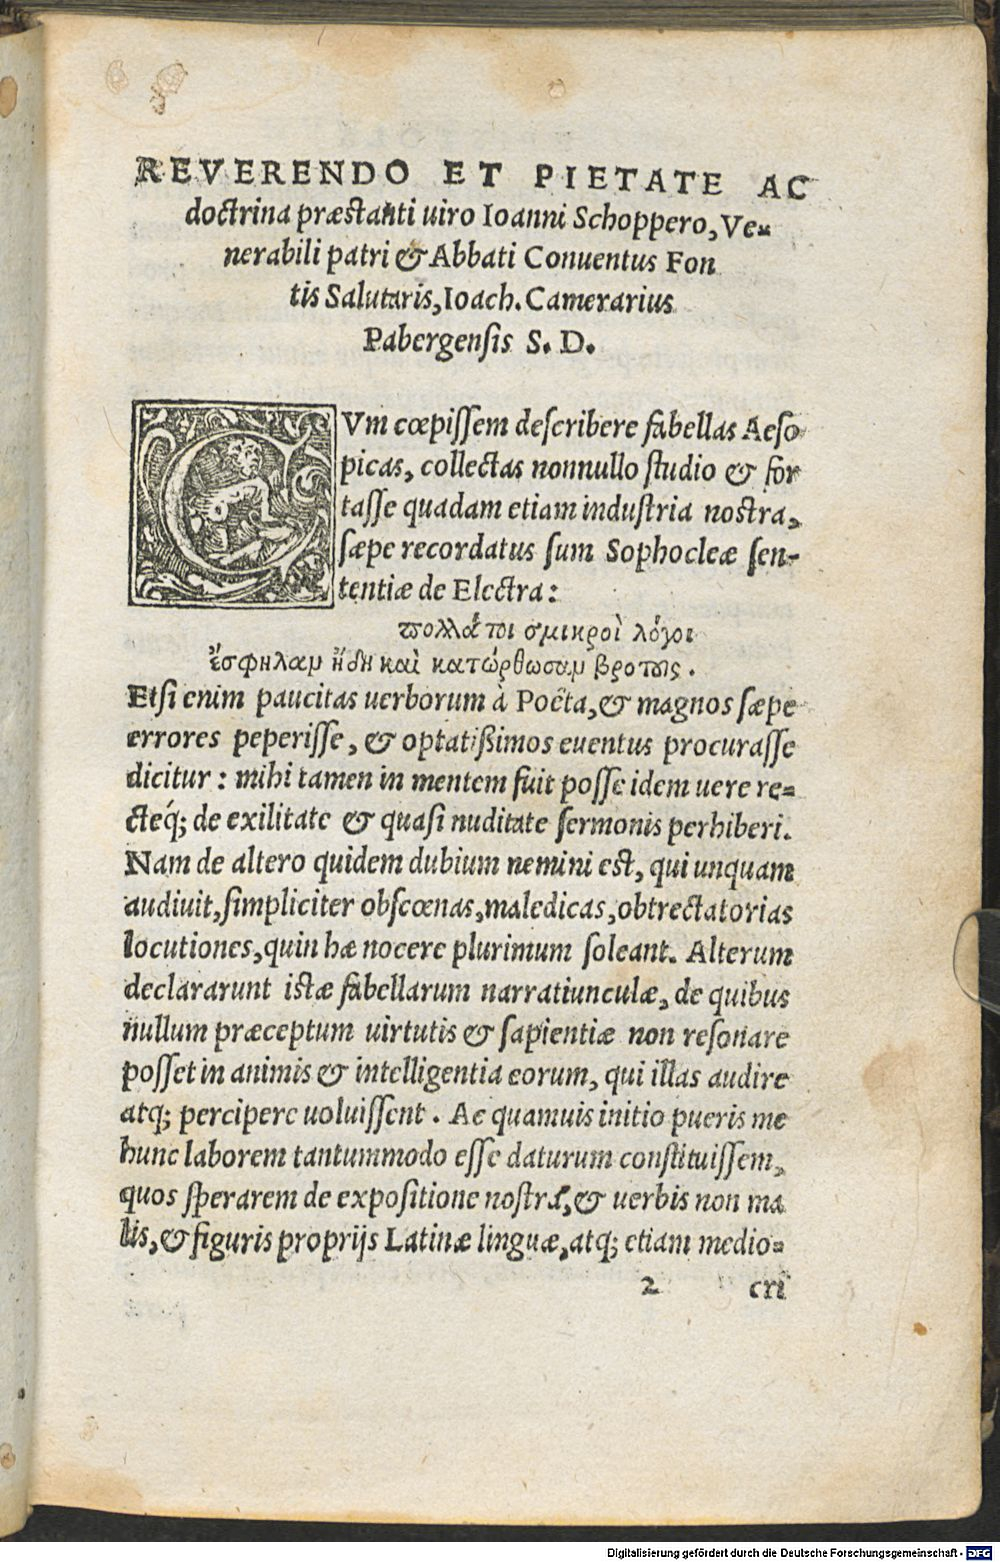 REVERENDO ET PIETATE AC
doctrina præstanti uiro Ioanni Schoppero, Ve-
nerabili patri & Abbati Conuentus Fon
tis Salutaris, Ioach. Camerarius
Pabergensis S. D.
CVm cœpissem describere fabellas Aeso
picas, collectas nonnullo studio & for
tasse quadam etiam industria nostra,
sæpe recordatus sum Sophocleæ sen-
tentiæ de Electra:
πολλά τοι σμικροὶ λόγοι
ἔσφηλαν ἤδη καὶ κατώρθωσαν βροτούς.
Etsi enim paucitas uerborum à Poëta, & magnos sæpe
errores peperisse, & optatißimos euentus procurasse
dicitur: mihi tamen in mentem fuit posse idem uere re-
ctéq; de exilitate & quasi nuditate sermonis perhiberi.
Nam de altero quidem dubium nemini est, qui unquam
audiuit, simpliciter obscœnas, maledicas, obtrectatorias
locutiones, quin hæ nocere plurimum soleant. Alterum
declararunt istæ fabellarum narratiunculæ, de quibus
nullum præceptum uirtutis & sapientiæ non resonare
posset in animis & intelligentia eorum, qui illas audire
atq; percipere uoluissent. Ac quamuis initio pueris me
hunc laborem tantummodo esse daturum constituissem,
quos sperarem de expositione nostra, & uerbis non ma
lis, & figuris proprijs Latinæ linguæ, atq; etiam medio-
2 cri
Digitalisierung gefördert durch die Deutsche Forschungsgemeinschaft - DFG